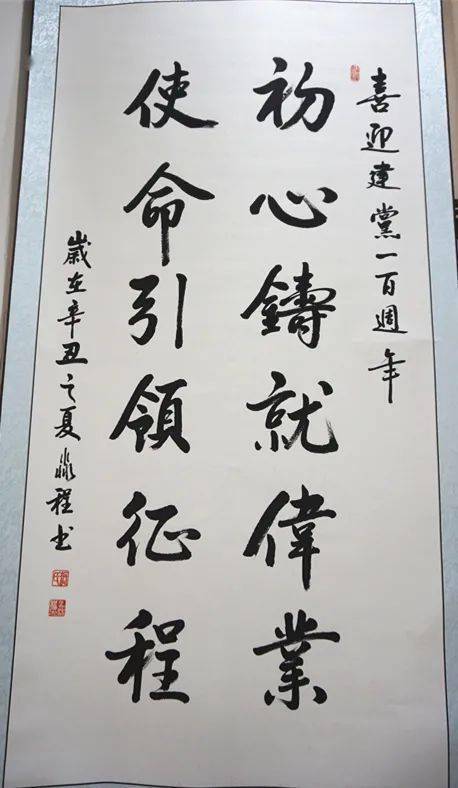 喜迎建黨一百週年
初心鑄就偉業
使命引領征程
歲在辛丑之夏兆程书